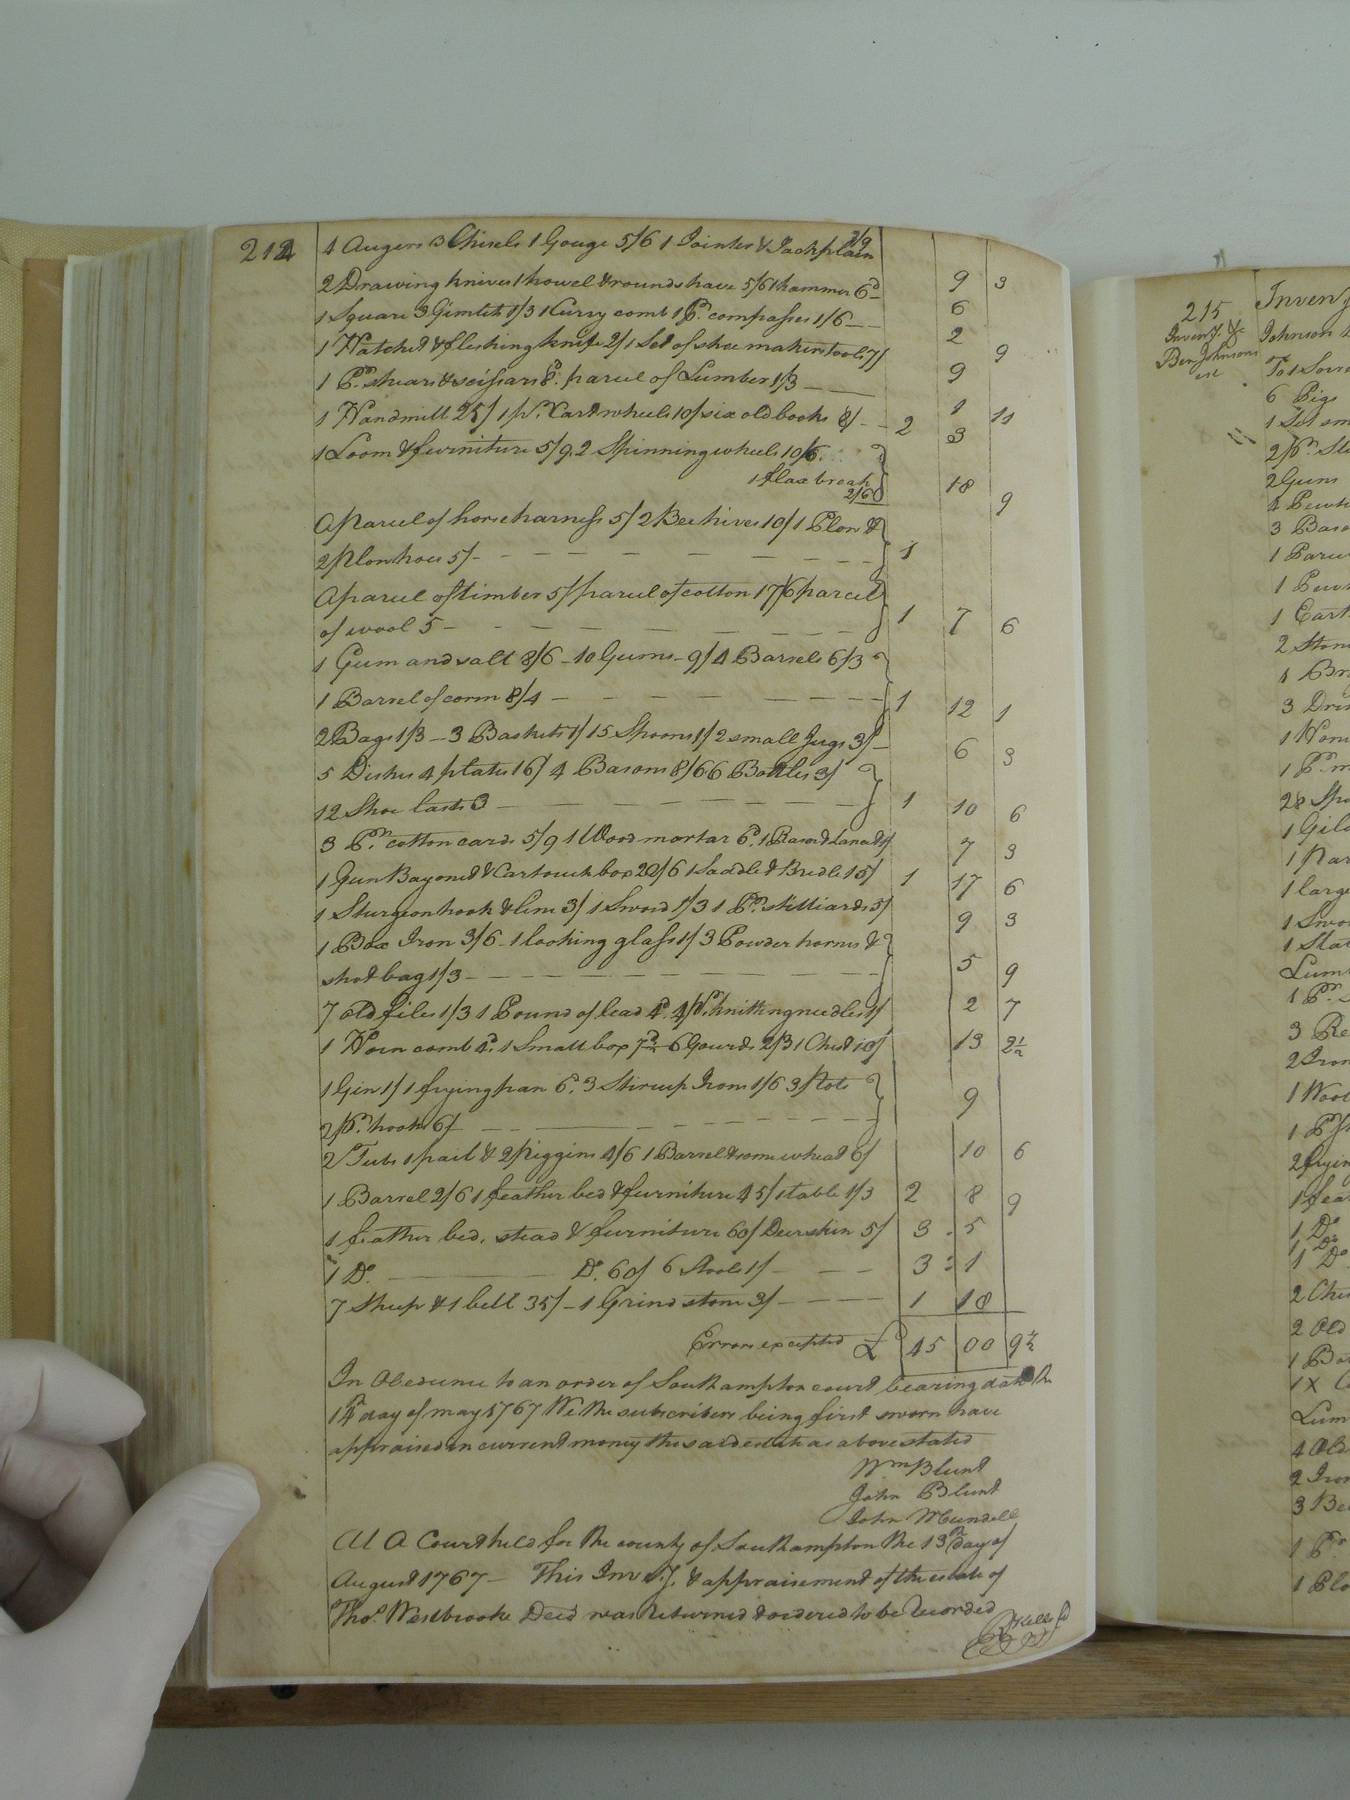 214
4 Augers 3 Chisels 1 Gouge 5/6 1 Jointer & Jackplain 3/9 9 3
2 Drawing knives 1 howel & roundshave 5/6 1 hammer 6d 6
1 Square 3 Gimlets 1/3 1 Curry comb 1 Pr. compasses 1/6 2 9
1 Hatchet & fleshing knife 2/ 1 Set of shoe makers tools 7/ 9
1 Pr. shears & scissars 8d. parcel of Lumber 1/3 1 11
1 Handmill 25/ 1 pr. Cart wheels 10/ six old books 8/ 2 3
1 Loom & furniture 5/9. 2 Spinning wheels 10/6.
1 flax break 2/6 18 9
A Parcel of horse harness 5/ 2 Bee hives 10/ 1 Plow &
2 Plow hoes 5/ 1
A parcel of timber 5/ parcel of cotton 17/6 parcel
of wool 5 1 7 6
1 Gum and salt 8/6 10 Gums 9/ 4 Barrels 6/3
1 Barrel of corn 8/4 1 12 1
2 Bags 1/3 3 Baskets 1/ 15 Spoons 1/ 2 small Jugs 3/ 6 3
5 Dishes 4 plates 16/ 4 Basons 8/6 6 Bottles 3/
12 Shoe lasts 3 1 10 6
3 Pr. cotton cards 5/9 1 Wood mortar 6d. 1 Rasor & 7 3
1 Gun Bayonet & Cartouch box 22/6 1 Saddle & Bridle 15/ 1 17 6
1 Sturgeon hook & line 3/ 1 Sword 1/3 1 Pr. stilliards 5/ 9 3
1 Box Iron 3/6 1 looking glass 1/ 3 Powder horns &
shot bag 1/3 5 9
7 old files 1/3 1 Pound of lead 4d. 4 pr. knitting needles 1/ 2 7
1 Horn comb 4d. 1 Small box 7d½ 6 Gourds 2/3 1 Chest 10/ 13 2½
1 Gin 1/ 1 frying pan 6d. 3 Stirrup Irons 1/6 3 Pots
2 Pr. hooks 6/ 9
2 Tubs 1 pail & 2 piggins 4/6 1 Barrel & some wheat 6/ 10 6
1 Barrel 2/6 1 feather bed & furniture 45/ 1 table 1/3 2 8 9
1 feather bed, stead & furniture 60/ Deerskin 5/ 3 5
1 Do. Do. 60/ 6 Stools 1/ 3 1
7 Sheep & 1 bell 35/ 1 Grind stone 3/ 1 18
Errors excepted £ 45 00 9½
In Obedience to an order of Southampton court bearing date the
14th day of may 1767 We the subscribers being first sworn have
appraised in current money the said estate as above stated
Wm Blunt
John Blunt
John
At A Court held for the county of Southampton the 13th day of
August 1767 This Inve.y. & appraisement of the estate of
Thos. Westbrooke Decd was returned & ordered to be Recorded
215
Inven.y. &c
Ben Johnsons
est
Inven.y
Johnson
To 1
6 Pigs
1 Set
2 Pr.
2 Guns
4
3
1
1
1
2
1
3
1
1 Pr.
28
1
1
1 large
1
1
1 Pr.
3
2 Iron
1
1
2
1
1 Do
1 Do
2
2 Old
1
4 Old
2 Iron
3
1 Pr
1